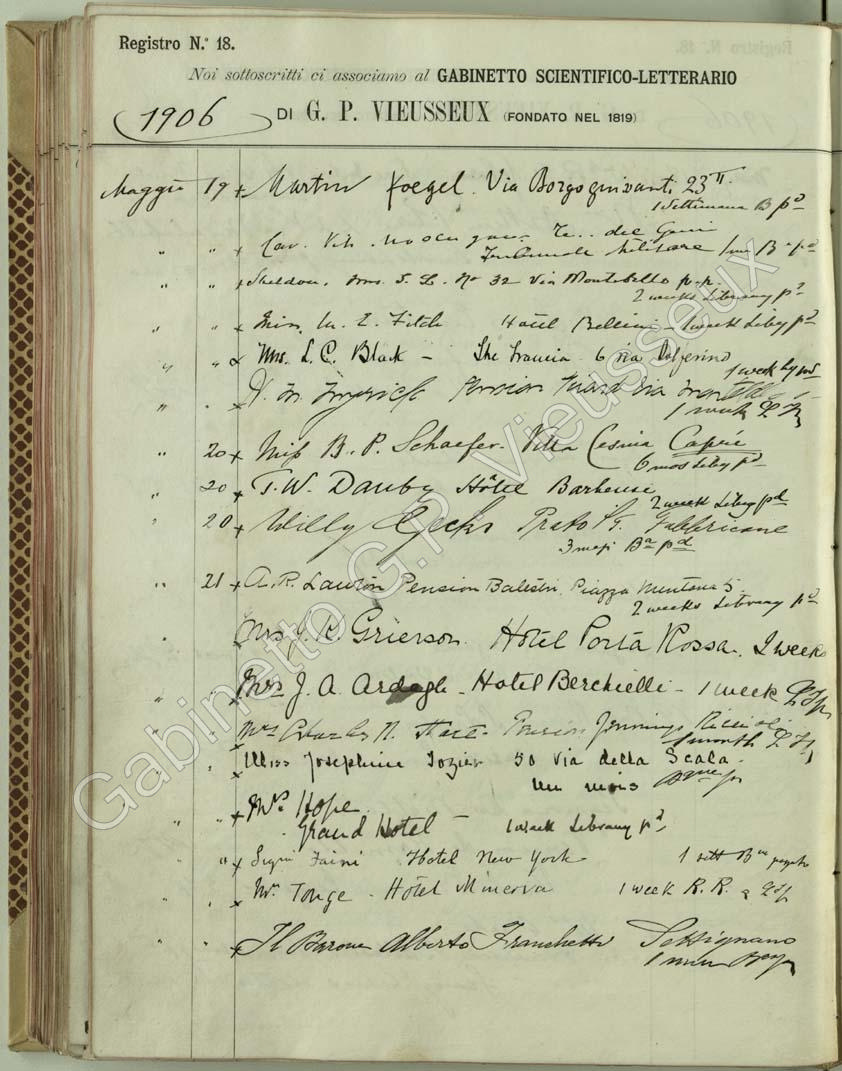 Registro N.° 18.
Noi sottoscritti ci associamo al GABINETTO SCIENTIFICO-LETTERARIO
1906 DI G. P. VIEUSSEUX (FONDATO NEL 1819)
Maggio 19 Martin Koegel. Via Borgognissanti 23 II.
1 Settimana B pd
" " Cav.
Tribunale Militare
" " Sheldon, Mrs. S. L. No 32 Via Montebello p.p.
2 weeks Library pd
" " Miss M. E. Fitch Hotel Bellini - 1 week Liby pd
" " Mrs. L. C. Black - 6 via Solferino
1 week
" " Pension
1 week
" 20 Miss B. P. Schaefer. Villa Capri
6 mos Liby pd
" 20 T. W. Danby Hotel
2 week Liby pd
" 20 Willy Prato Fabbricone
3 mesi Ba pd
" 21 A. R. Pension Balestri, Piazza Mentana 5
2 weeks Library pd
" Mrs J. R. Grierson. Hotel Porta Rossa. 2 weeks
" " Mrs J. A. Ardagh - Hotel Berchielli - 1 week
" " Mrs Charles N. Pension Jennings Riccioli
1 month
" " Miss Josephine Tozier 50 Via della Scala
un mois
Mrs Hope
" " Grand Hotel - 1 week Library pd
" " Faini Hotel New York 1 sett
" " Tonge - Hôtel Minerva 1 week R. R.
" " Il Barone Alberto Franchetti Settignano
Gabinetto G.P. Vieusseux